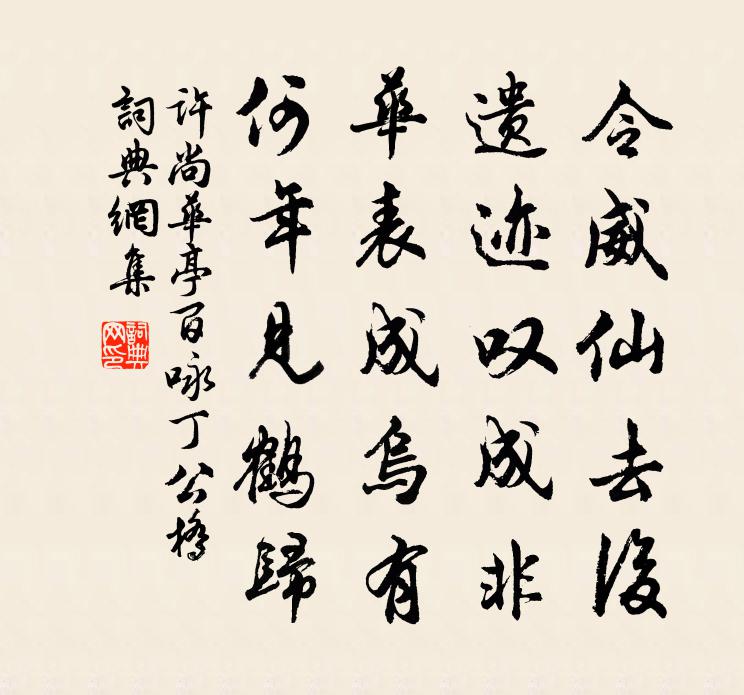 令威仙去後
遗迹叹成非
華表成烏有
何年見鶴歸
许尚華亭百咏丁公橋
詞典網集
詞典网印